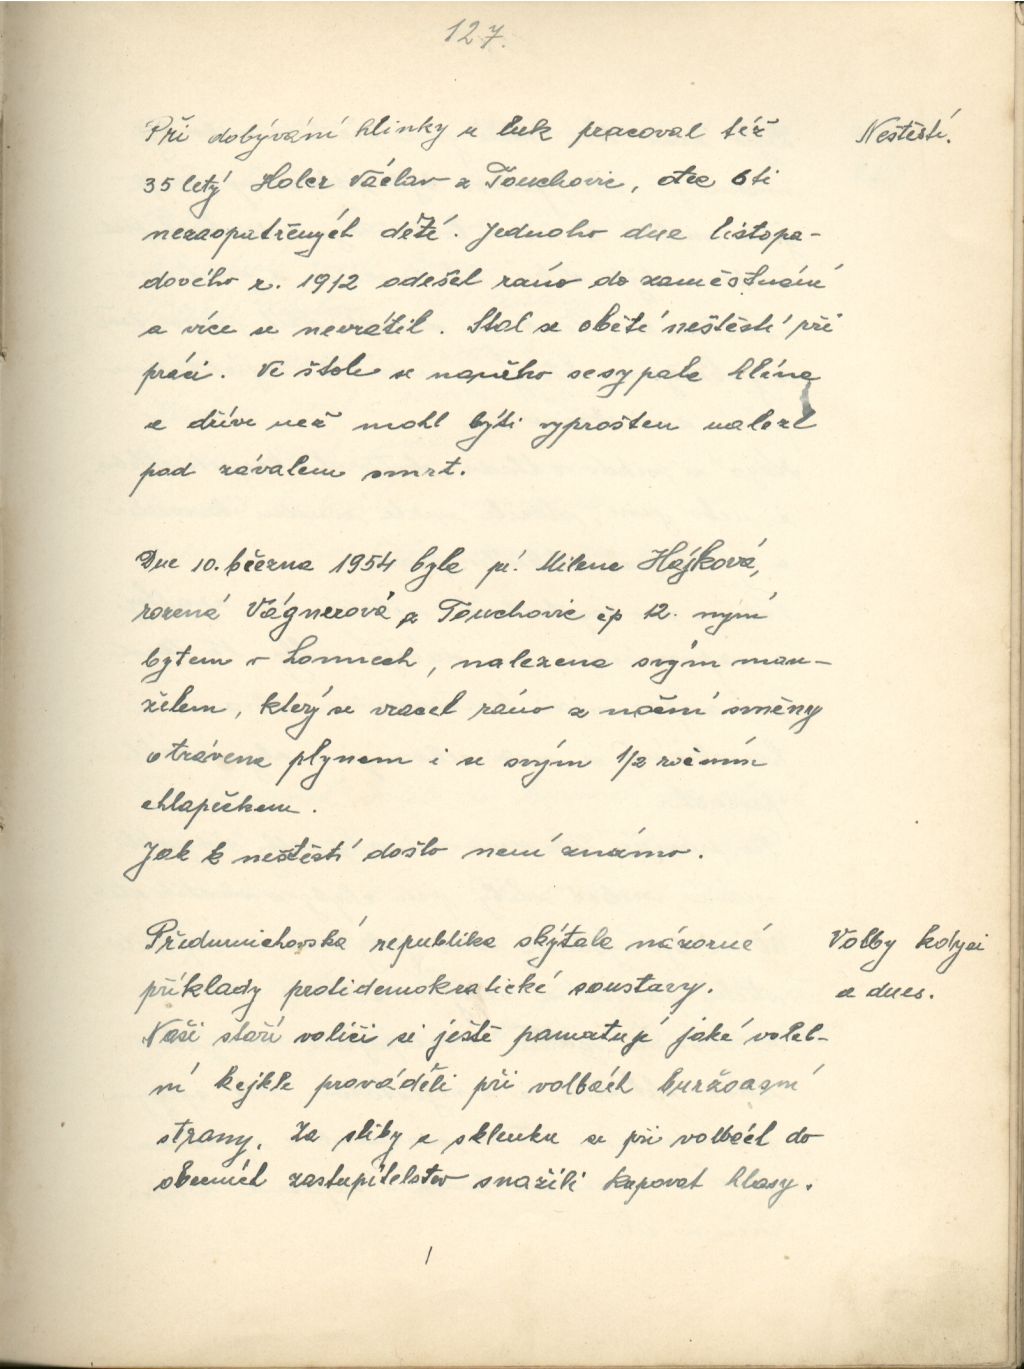 127.
Při dobývání hlinky u luk pracoval též
Neštěstí.
35 letý Holer Václav z Touchovic, otec 6ti
nezaopatřených dětí. Jednoho dne listopa-
dového r. 1912 odešel ráno do zaměstnání
a více se nevrátil. Stal se obětí neštěstí při
práci. Ve štole se na něho sesypala hlína
a dříve než mohl býti vyproštěn nalezl
pod závalem smrt.
Dne 10. března 1954 byla pí. Milena Hájková,
rozená Vágnerová z Touchovic čp 12. nyní
bytem v Lounech, nalezena svým man-
želem, který se vracel ráno z noční směny
otrávena plynem i se svým 1/2 ročním
chlapečkem.
Jak k neštěstí došlo není známo.
Předmnichovská republika skýtala názorné
Volby kdysi
příklady protidemokratické soustavy.
a dnes.
Naši staří voliči si ještě pamatují jaké voleb-
ní kejkle prováděli při volbách buržoazní
strany. Za sliby a sklenku se při volbách do
obecních zastupitelstev snažili kupovat hlasy.